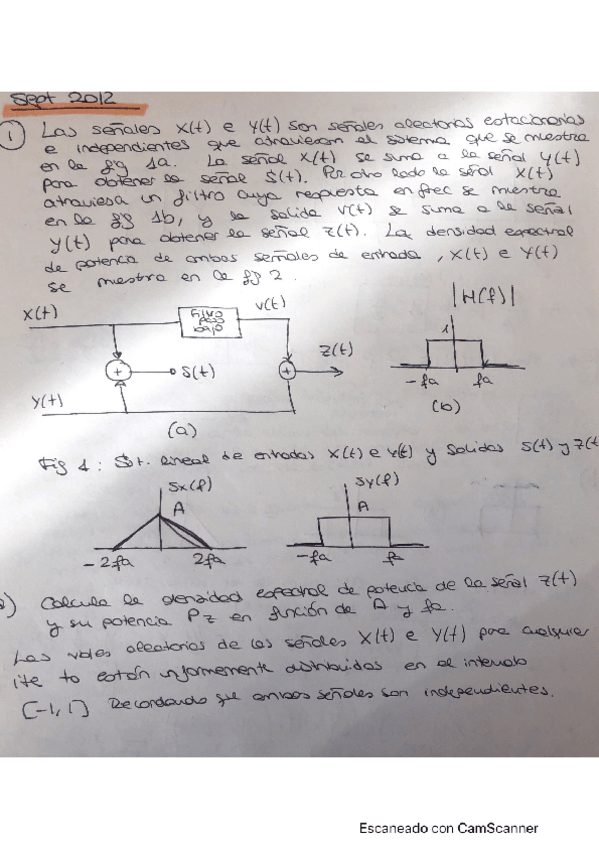 Sept 2012
1 Las señales X(t) e Y(t) son señales aleatorias estacionarias
e independientes que atraviesan el sistema que se muestra
en la fig 1a. La señal X(t) se suma a la señal Y(t)
para obtener la señal S(t). Por otro lado la señal X(t)
atraviesa un filtro cuya respuesta en frec se muestra
en la fig 1b, y la salida V(t) se suma a la señal
Y(t) para obtener la señal Z(t). La densidad espectral
de potencia de ambas señales de entrada, X(t) e Y(t)
se muestra en la fig 2.
X(t)
Filtro
paso
bajo
V(t)
|H(f)|
1
-fa
fa
(b)
+
S(t)
+
Z(t)
Y(t)
(a)
Fig 1: St. lineal de entradas X(t) e Y(t) y salidas S(t) y Z(t
Sx(f)
A
-2fa
2fa
Sy(f)
A
-fa
fa
) Calcula la densidad espectral de potencia de la señal Z(t)
y su potencia Pz en función de A y fa.
Las vales aleatorias de las señales X(t) e Y(t) para cualquier
ite to están uniformemente distribuidas en el intervalo
[-1,1] Recordando que ambas señales son independientes.
Escaneado con CamScanner